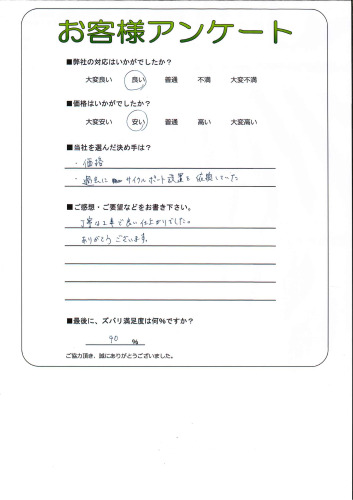 お客様アンケート
■弊社の対応はいかがでしたか？
大変良い 良い 普通 不満 大変不満
■価格はいかがでしたか？
大変安い 安い 普通 高い 大変高い
■当社を選んだ決め手は？
・価格
・過去に サイクルポート設置を依頼していた
■ご感想・ご要望などをお書き下さい。
丁寧な工事で良い仕上がりでした。
ありがとうございます。
■最後に、ズバリ満足度は何％ですか？
90 ％
ご協力頂き、誠にありがとうございました。